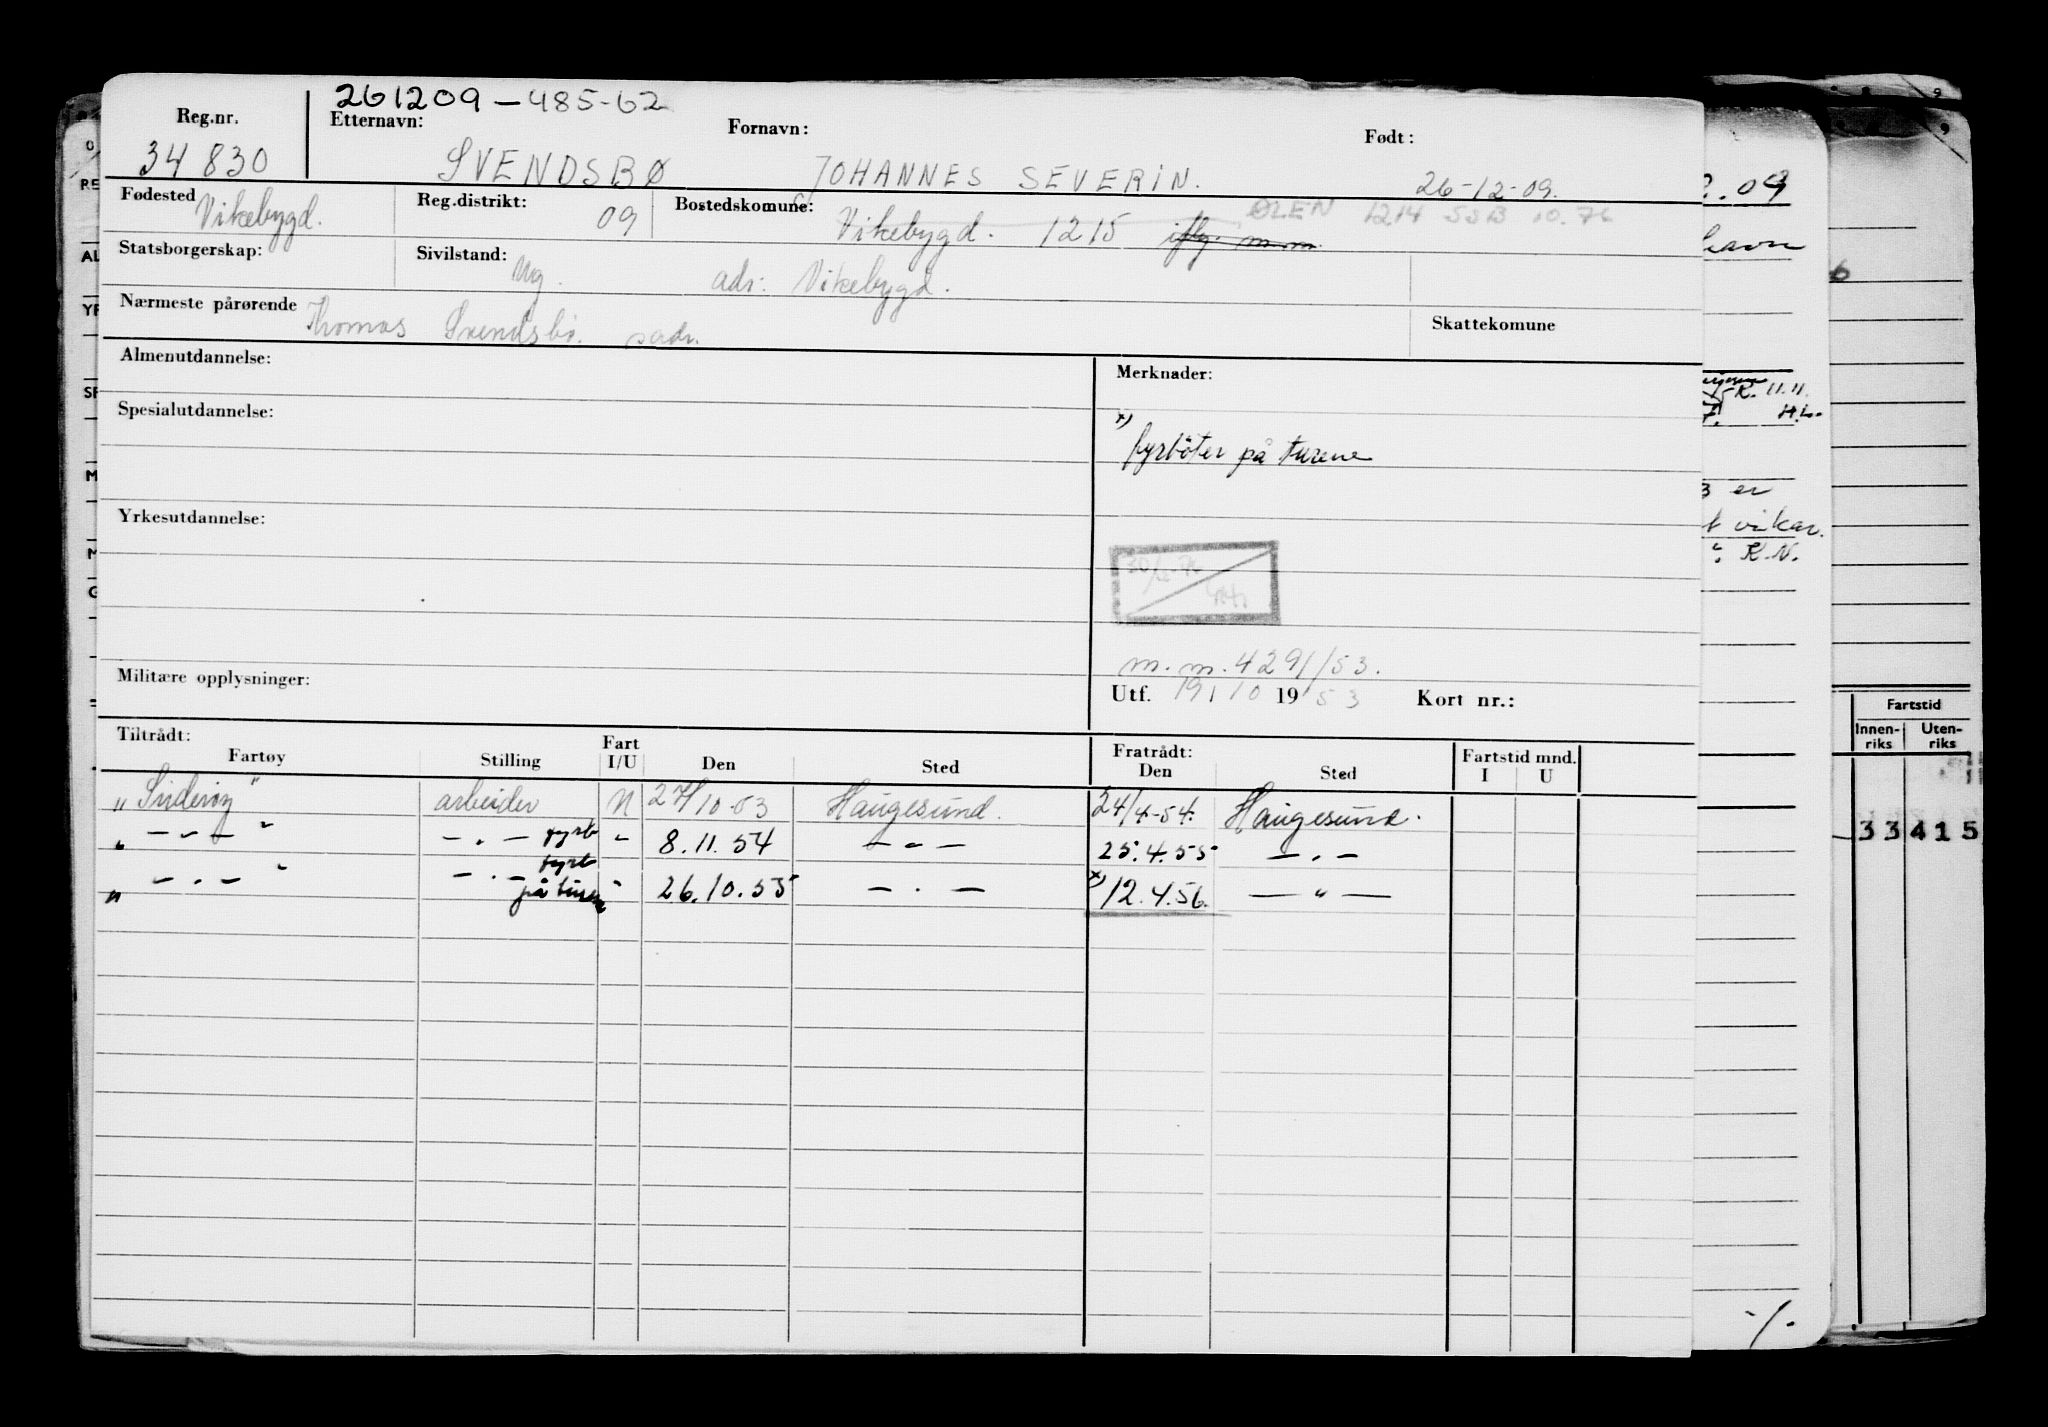 261209-485-62
Reg.nr. Etternavn: Fornavn: Født:
34 830 SVENDSBØ JOHANNES SEVERIN. 26-12-09.
Fødested Vikebygd. Reg.distrikt: 09 Bostedskomune: Vikebygd. 1215 iflg. m.m. ØLEN 1214 SSB 10.76
Statsborgerskap: Sivilstand: Ug. adr. Vikebygd.
Nærmeste pårørende Thomas Svendsbø. s.adr. Skattekomune
Almenutdannelse: Merknader:
Spesialutdannelse:
x) fyrbøter på turene
Yrkesutdannelse:
m.m. 4291/53.
Militære opplysninger: Utf. 19/10 1953 Kort nr.:
Tiltrådt: Fratrådt:
Fartøy Stilling Fart I/U Den Sted Den Sted Fartstid mnd. I U
" Suderøy " arbeider N 27/10-53 Haugesund. 24/4-54. Haugesund.
" — " — " — " — fyrb " 8.11.54 — " — 25.4.55 — " —
" — " — " — " — fyrb på turen " 26.10.55 — " — x) 12.4.56. — " —
2.09
havn
K. 11.11.
H.L.
3 er
t vikar.
" K.N.
-/.
Fartstid
Innen-riks Uten-riks
33 415